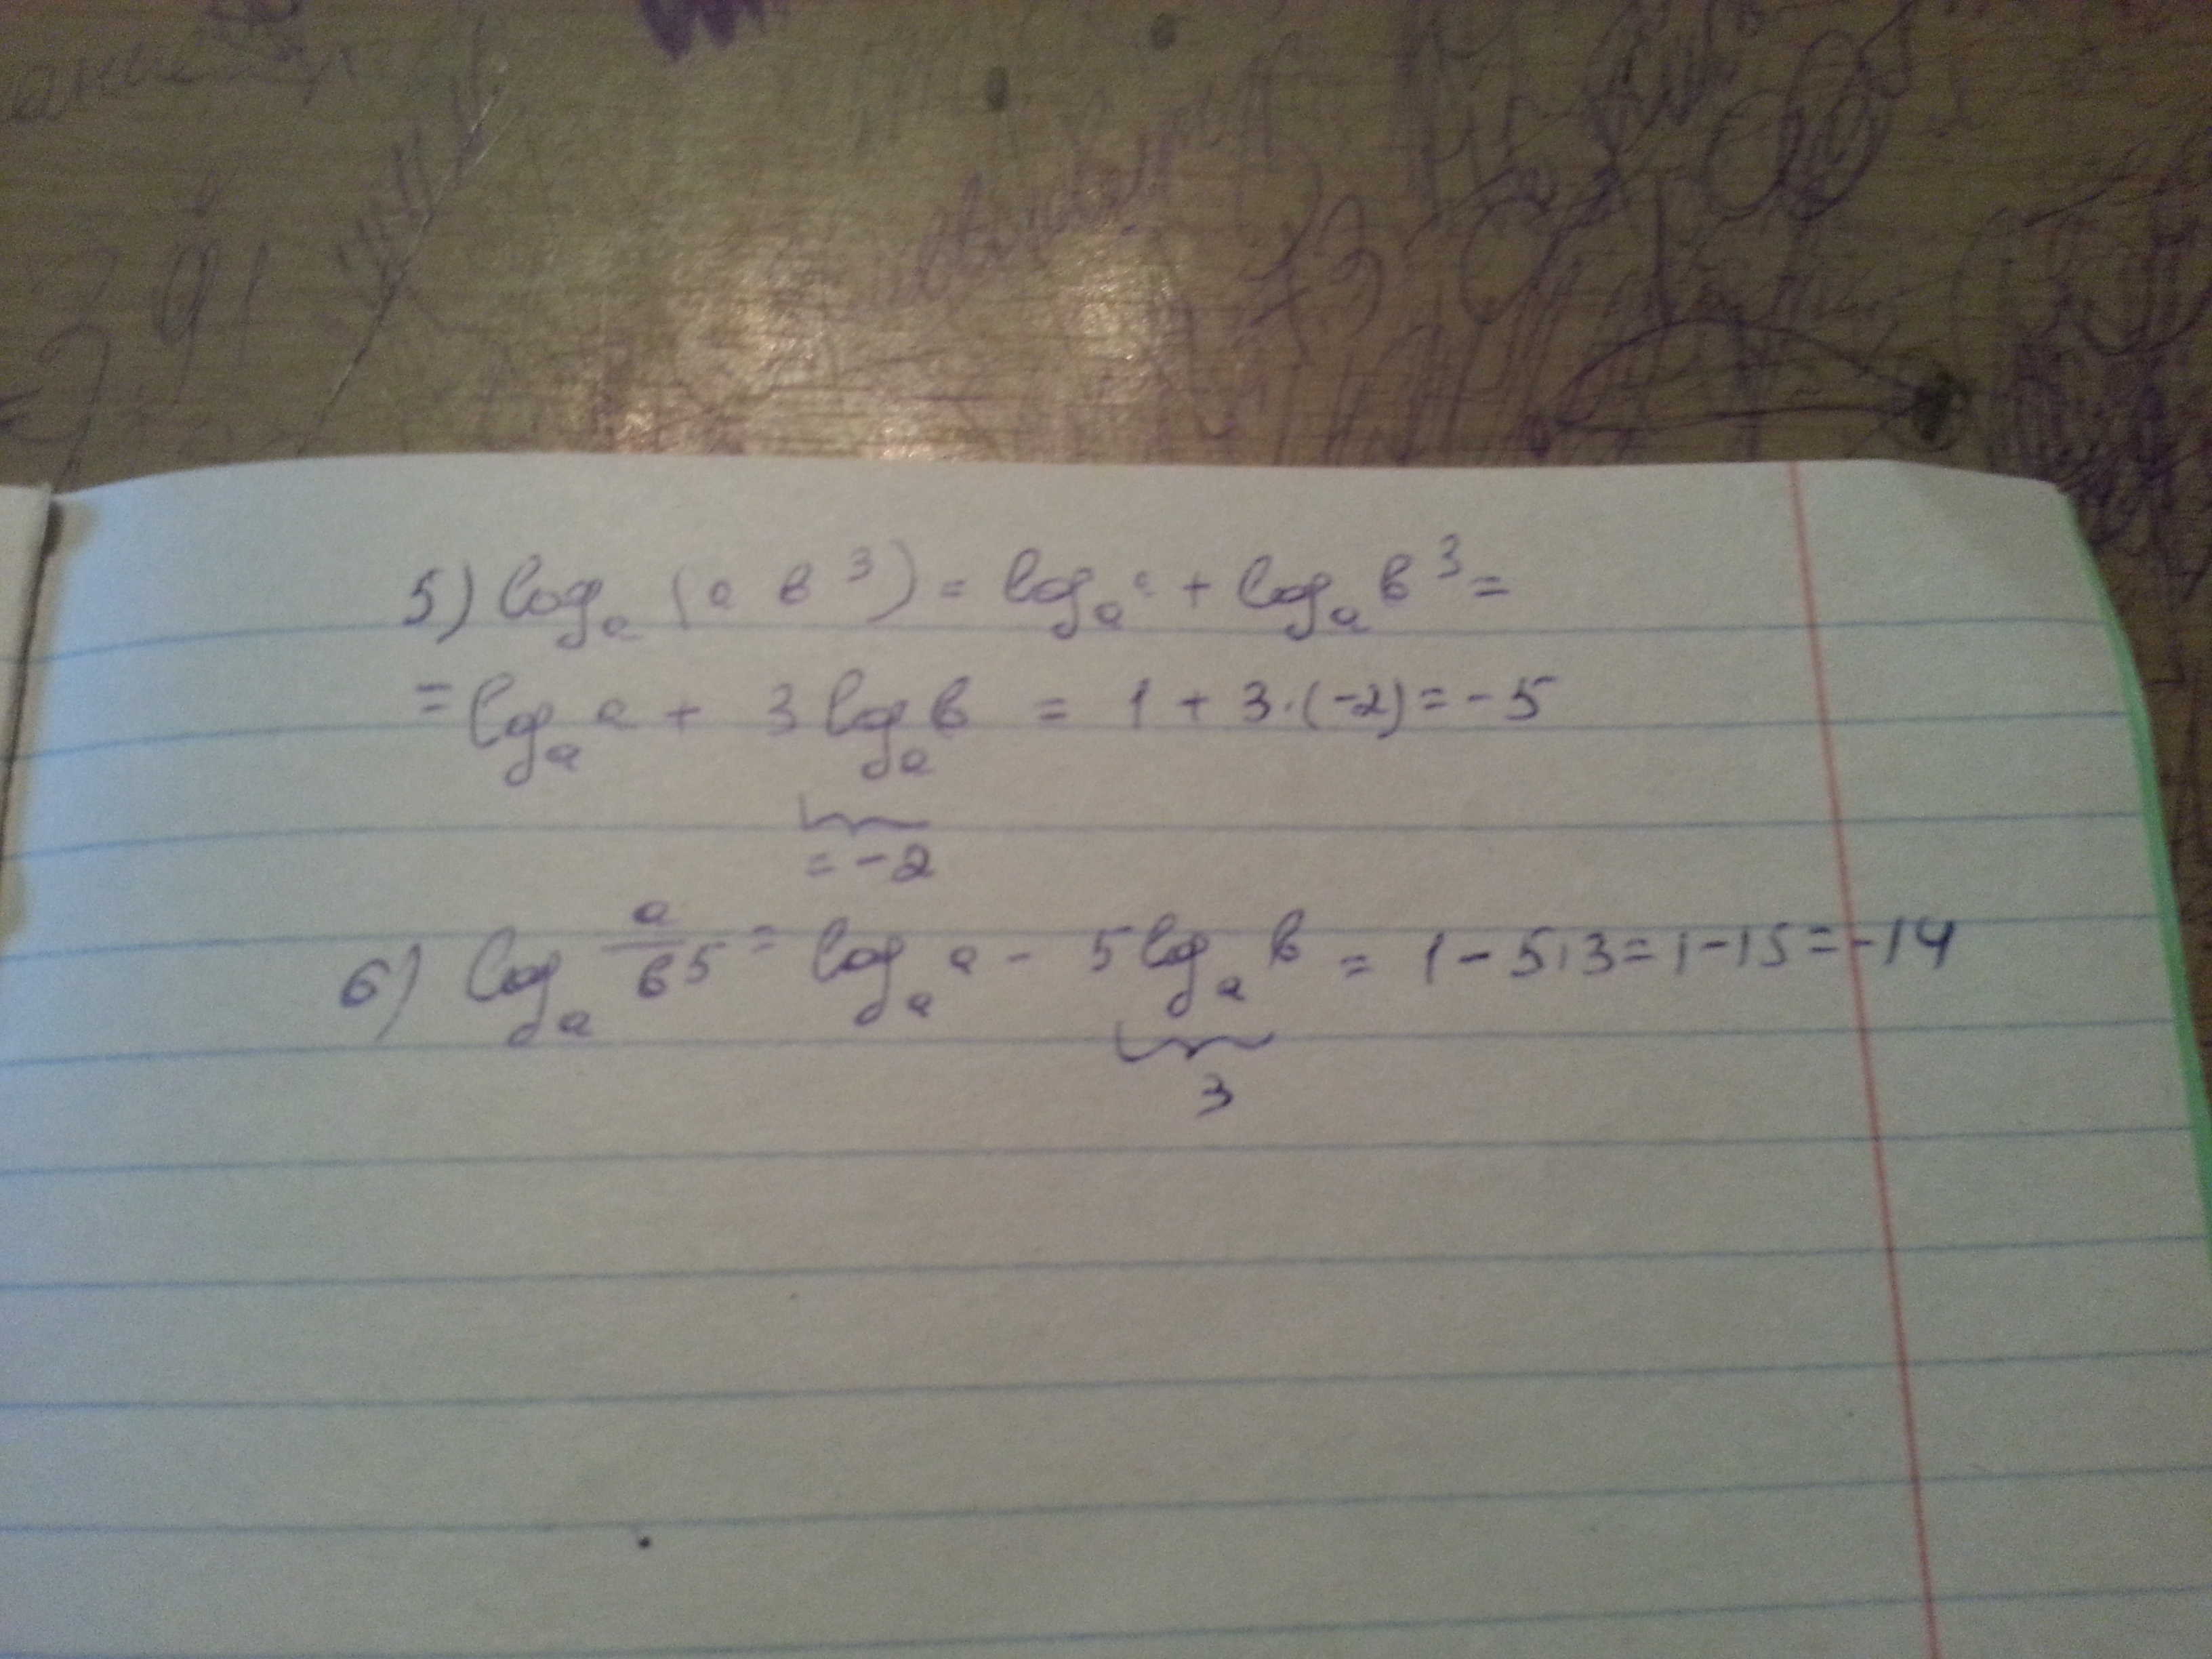 291
5) logₐ (a b³) = logₐ a + logₐ b³ =
= logₐ a + 3 logₐ b = 1 + 3·(-2) = -5
= -2
6) logₐ a/b5 = logₐ a - 5 logₐ b = 1 - 5·3 = 1 - 15 = -14
3